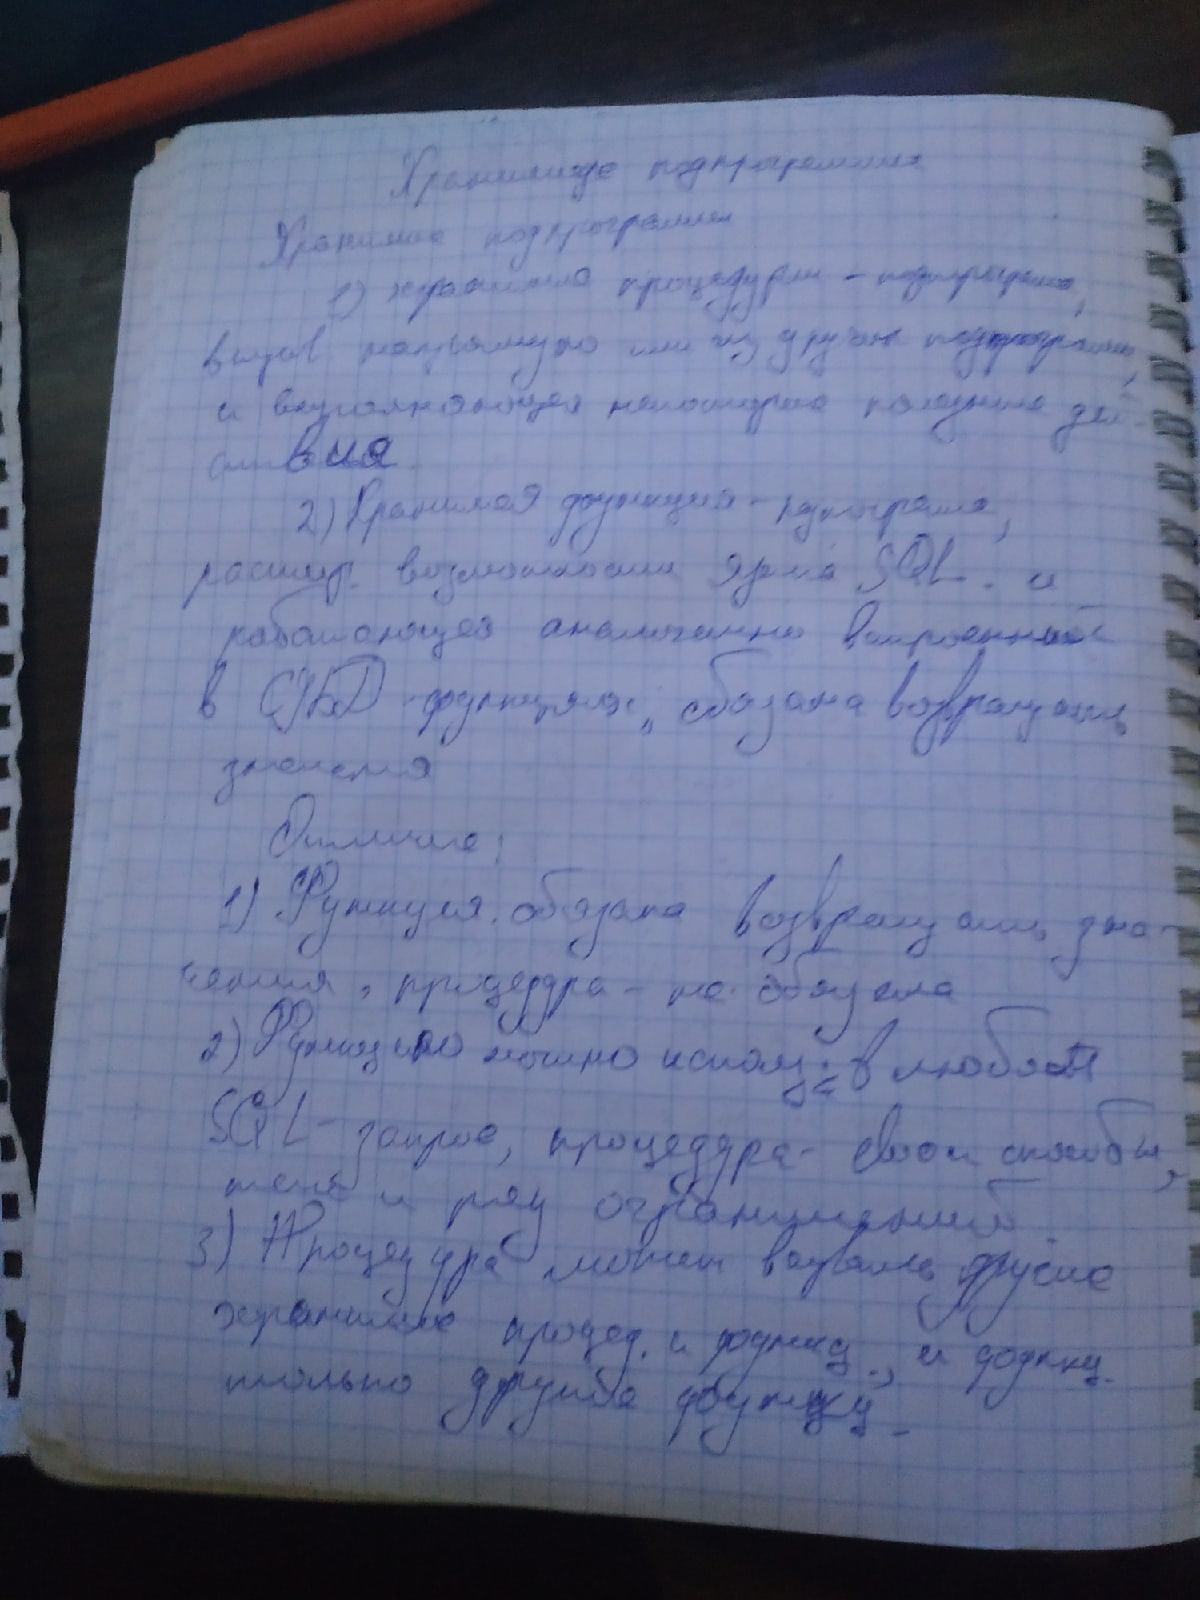 Хранимые подпрограммы
Хранимые подпрограммы
1) хранимые процедуры - подпрограмма,
вызов напрямую или из других подпрограмм,
и выполняющая некоторые полезные дей-
ствия
2) Хранимая функция - подпрограмма,
расшир. возможности SQL. и
работающая аналогично встроенной
в СУБД функциях, обязана возвращать
значения
Отличие:
1) Функция обязана возвращать зна-
чения, процедура - не обязана
2) Функцию можно использ. в любом
SQL - запросе, процедура - свои способы,
и ряд ограничений
3) Процедура может вызвать другие
хранимые процед. и функц., и функц.
только другие функц.